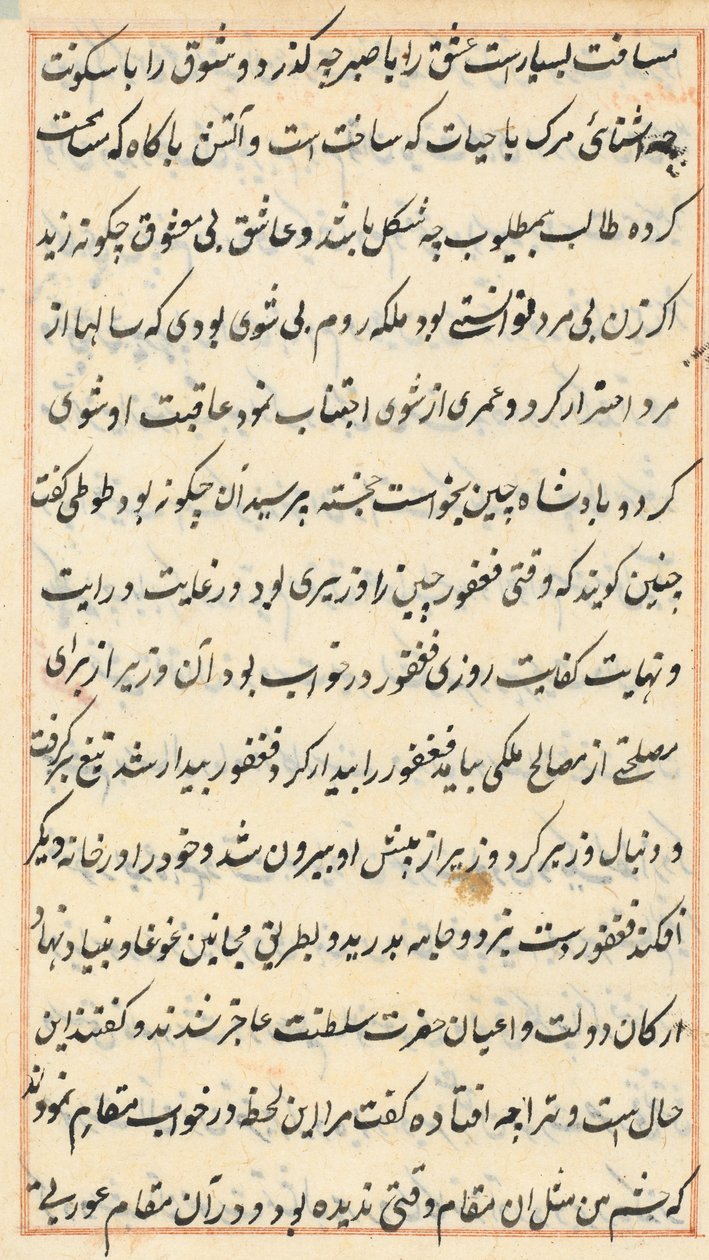 مسافت بسیار است عشق را با صبر چه کذر دو شوق را با سکونت
چه اشنائ مرک با حیات که ساخت است و آتش با کاه که ساخت
کرده طالب بمطلوب چه شکل باشد و عاشق بی معشوق چکونه زید
اکر زن بی مرد توانستے بود ملکه روم بی شوی بودی که سالها از
مرد احتراز کرد و عمری از شوی اجتناب نمود عاقبت او شوی
کرد و بادشاه چین بخواست خجسته پرسید آن چکونه بود طوطی کفت
چنین کویند که وقتی فغفور چین را وزیری بود در غایت درایت
و نهایت کفایت روزی فغفور در خواب بود آن وزیر از برای
مصلحتے از مصالح ملکی بیامد فغفور را بیدار کرد فغفور بیدار شد تیغ برکرفت
و دنبال وزیر کرد وزیر از پیش او بیرون شد و خود را در خانه دیکر
افکند فغفور دست بزد و جامه بدرید و بطریق مجانین غوغا و بنیاد نهاد
ارکان دولت و اعیان حضرت سلطنت عاجز شدند و کفتند این
حال است و ترا چه افتاده کفت مرا این لحظه در خواب مقامی نمودند
که چشم من مثل ان مقام وقتی ندیده بود و در آن مقام عورتی